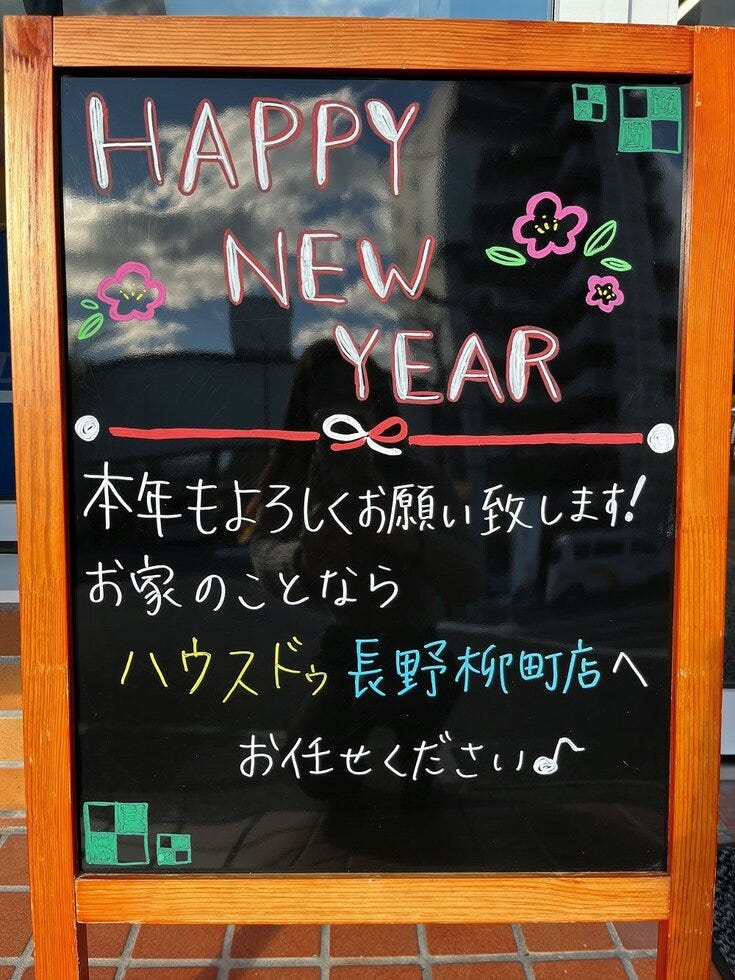 HAPPY
NEW
YEAR
本年もよろしくお願い致します!
お家のことなら
ハウスドゥ 長野柳町店へ
お任せください♪